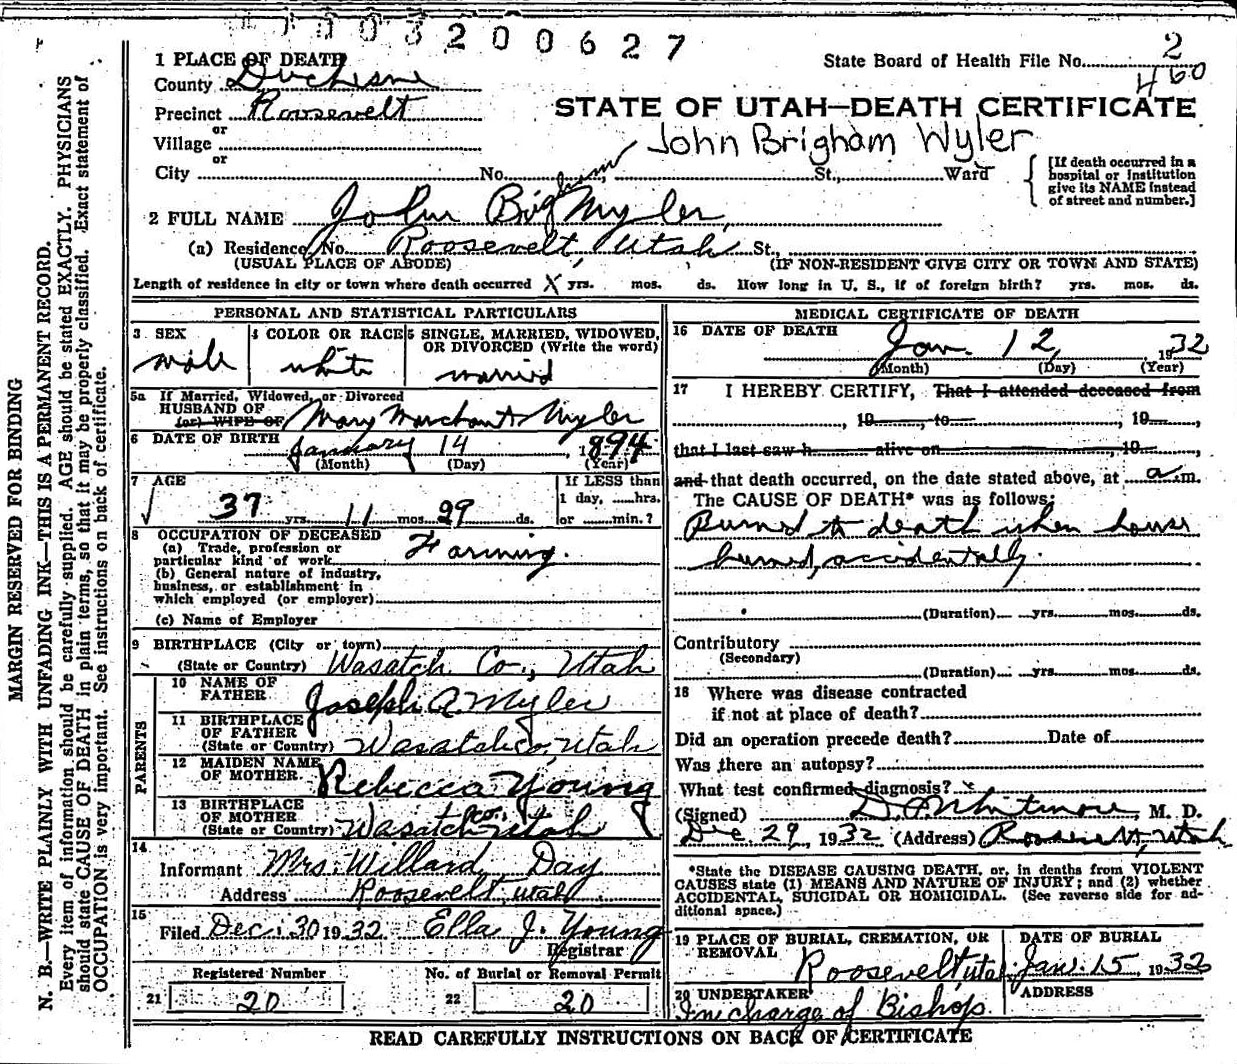 1003200627
State Board of Health File No. 2
460
1 PLACE OF DEATH
County Duchesne
Precinct Roosevelt
or
Village
or
City No. St., Ward
STATE OF UTAH—DEATH CERTIFICATE
John Brigham Wyler
[If death occurred in a
hospital or institution
give its NAME instead
of street and number.]
2 FULL NAME John Brigham Wyler
(a) Residence, No. Roosevelt, Utah St.,
(USUAL PLACE OF ABODE) (IF NON-RESIDENT GIVE CITY OR TOWN AND STATE)
Length of residence in city or town where death occurred X yrs. mos. ds. How long in U. S., if of foreign birth? yrs. mos. ds.
PERSONAL AND STATISTICAL PARTICULARS
3 SEX 4 COLOR OR RACE 5 SINGLE, MARRIED, WIDOWED, OR DIVORCED (Write the word)
male white married
5a If Married, Widowed, or Divorced
HUSBAND OF
(or) WIFE OF Mary Merchant Myler
6 DATE OF BIRTH January 14, 1894
(Month) (Day) (Year)
7 AGE If LESS than
1 day, hrs.
37 yrs. 11 mos. 29 ds. or min.?
8 OCCUPATION OF DECEASED
(a) Trade, profession or
particular kind of work Farming.
(b) General nature of industry,
business, or establishment in
which employed (or employer)
(c) Name of Employer
9 BIRTHPLACE (City or town)
(State or Country) Wasatch Co., Utah
PARENTS
10 NAME OF
FATHER Joseph A. Myler
11 BIRTHPLACE
OF FATHER
(State or Country) Wasatch co, Utah
12 MAIDEN NAME
OF MOTHER Rebecca Young
13 BIRTHPLACE
OF MOTHER
(State or Country) Wasatch co. Utah
14
Informant Mrs. Willard Day
Address Roosevelt, Utah
15
Filed Dec. 30 1932 Ella J. Young
Registrar
Registered Number No. of Burial or Removal Permit
21 20 22 20
MEDICAL CERTIFICATE OF DEATH
16 DATE OF DEATH Jan. 12, 1932
(Month) (Day) (Year)
17 I HEREBY CERTIFY, That I attended deceased from
, 19 , to , 19 ,
that I last saw h alive on , 19 ,
and that death occurred, on the date stated above, at a m.
The CAUSE OF DEATH* was as follows:
Burned to death when house
burned, accidentally.
(Duration) yrs. mos. ds.
Contributory
(Secondary)
(Duration) yrs. mos. ds.
18 Where was disease contracted
if not at place of death?
Did an operation precede death? Date of
Was there an autopsy?
What test confirmed diagnosis?
(Signed) Whitmore, M. D.
Dec 29, 1932 (Address) Roosevelt, Utah
*State the DISEASE CAUSING DEATH, or, in deaths from VIOLENT
CAUSES state (1) MEANS AND NATURE OF INJURY; and (2) whether
ACCIDENTAL, SUICIDAL OR HOMICIDAL. (See reverse side for ad-
ditional space.)
19 PLACE OF BURIAL, CREMATION, OR
REMOVAL DATE OF BURIAL
Roosevelt, Utah Jan. 15, 1932
20 UNDERTAKER ADDRESS
In charge of Bishop
READ CAREFULLY INSTRUCTIONS ON BACK OF CERTIFICATE
MARGIN RESERVED FOR BINDING
N. B.—WRITE PLAINLY WITH UNFADING INK—THIS IS A PERMANENT RECORD.
Every item of information should be carefully supplied. AGE should be stated EXACTLY. PHYSICIANS
should state CAUSE OF DEATH in plain terms, so that it may be properly classified. Exact statement of
OCCUPATION is very important. See instructions on back of certificate.